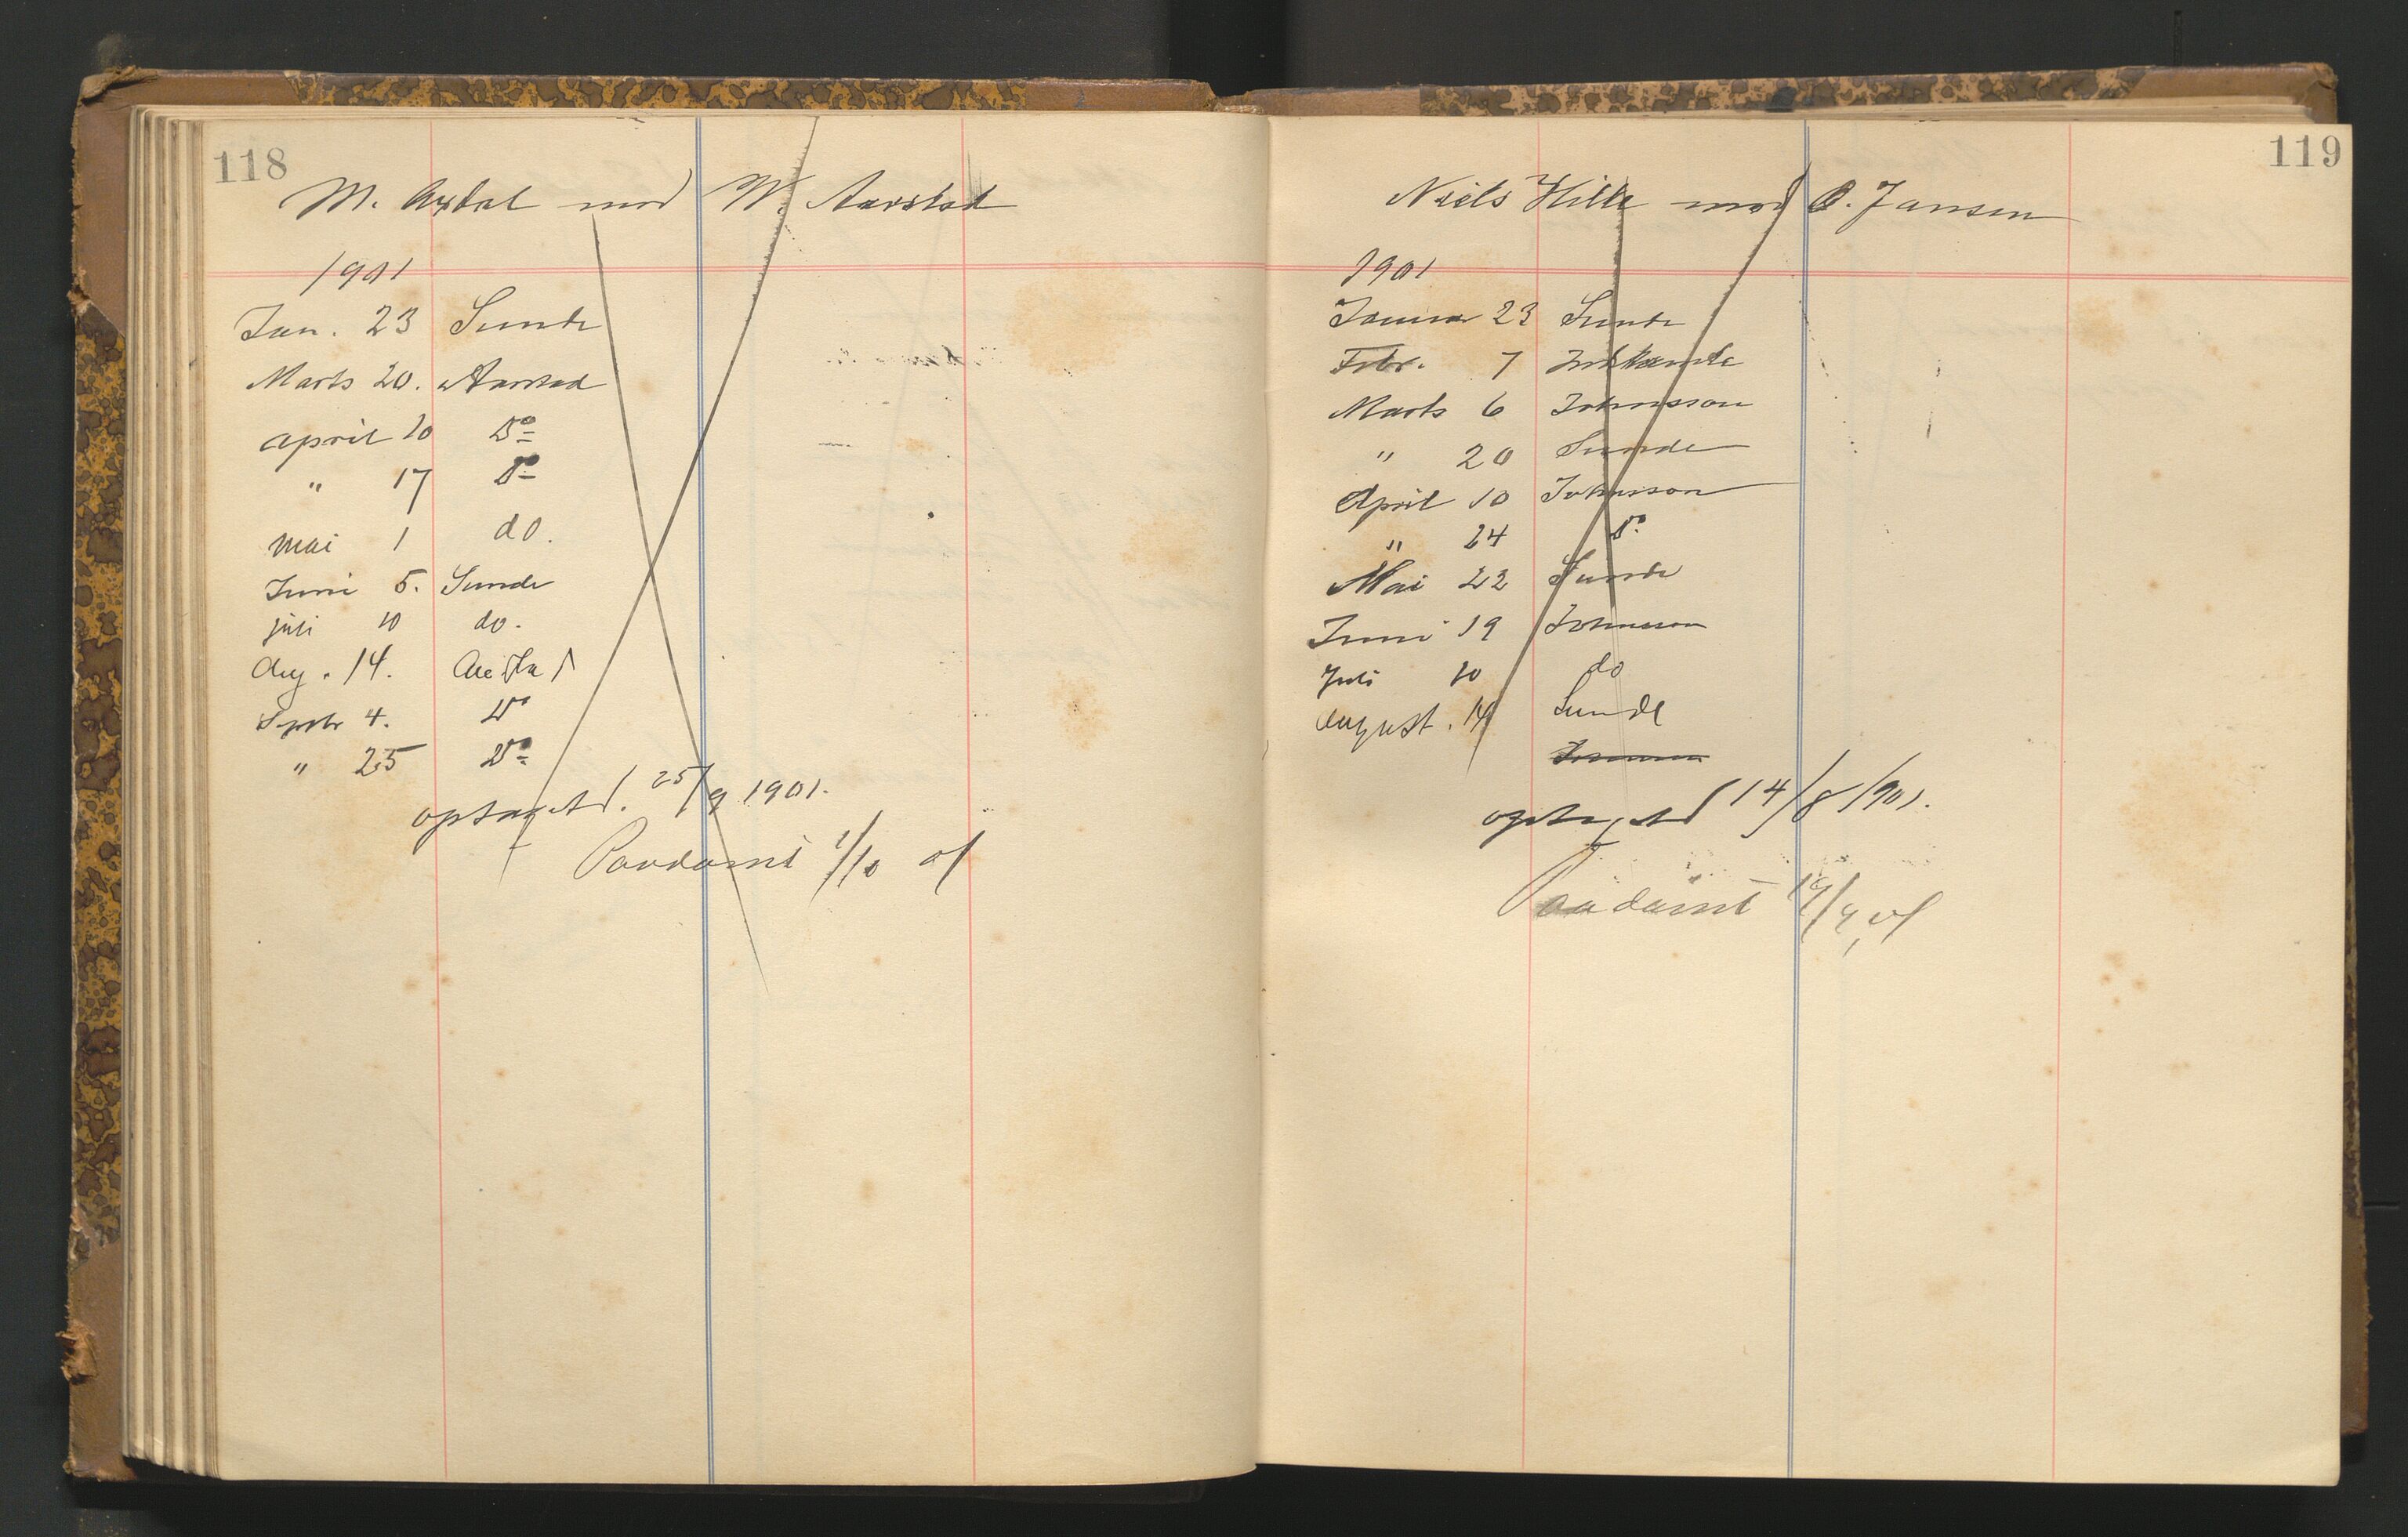 118
M. Axdal mod W. Aarstad
1901
Jan. 23 Sunde
Marts 20. Aarstad
April 10 Do
" 17 Do
Mai 1 do.
Juni 5. Sunde
juli 10 do.
Aug. 14. Aarstad
Septbr 4. Do
" 25 Do
optaget d. 25/9 1901.
Paadømt 2/10 01
119
Niels Hille mod O. Jansen
1901
Januar 23 Sunde
Febr. 7
Marts 6 Johnsson
" 20 Sunde
April 10 Johnsson
" 24 Do
Mai 22 Sunde
Juni 19 Johnsson
Juli 10 do
August. 14 Sunde
optaget d 14/8/901.
Paadømt 19/9 01